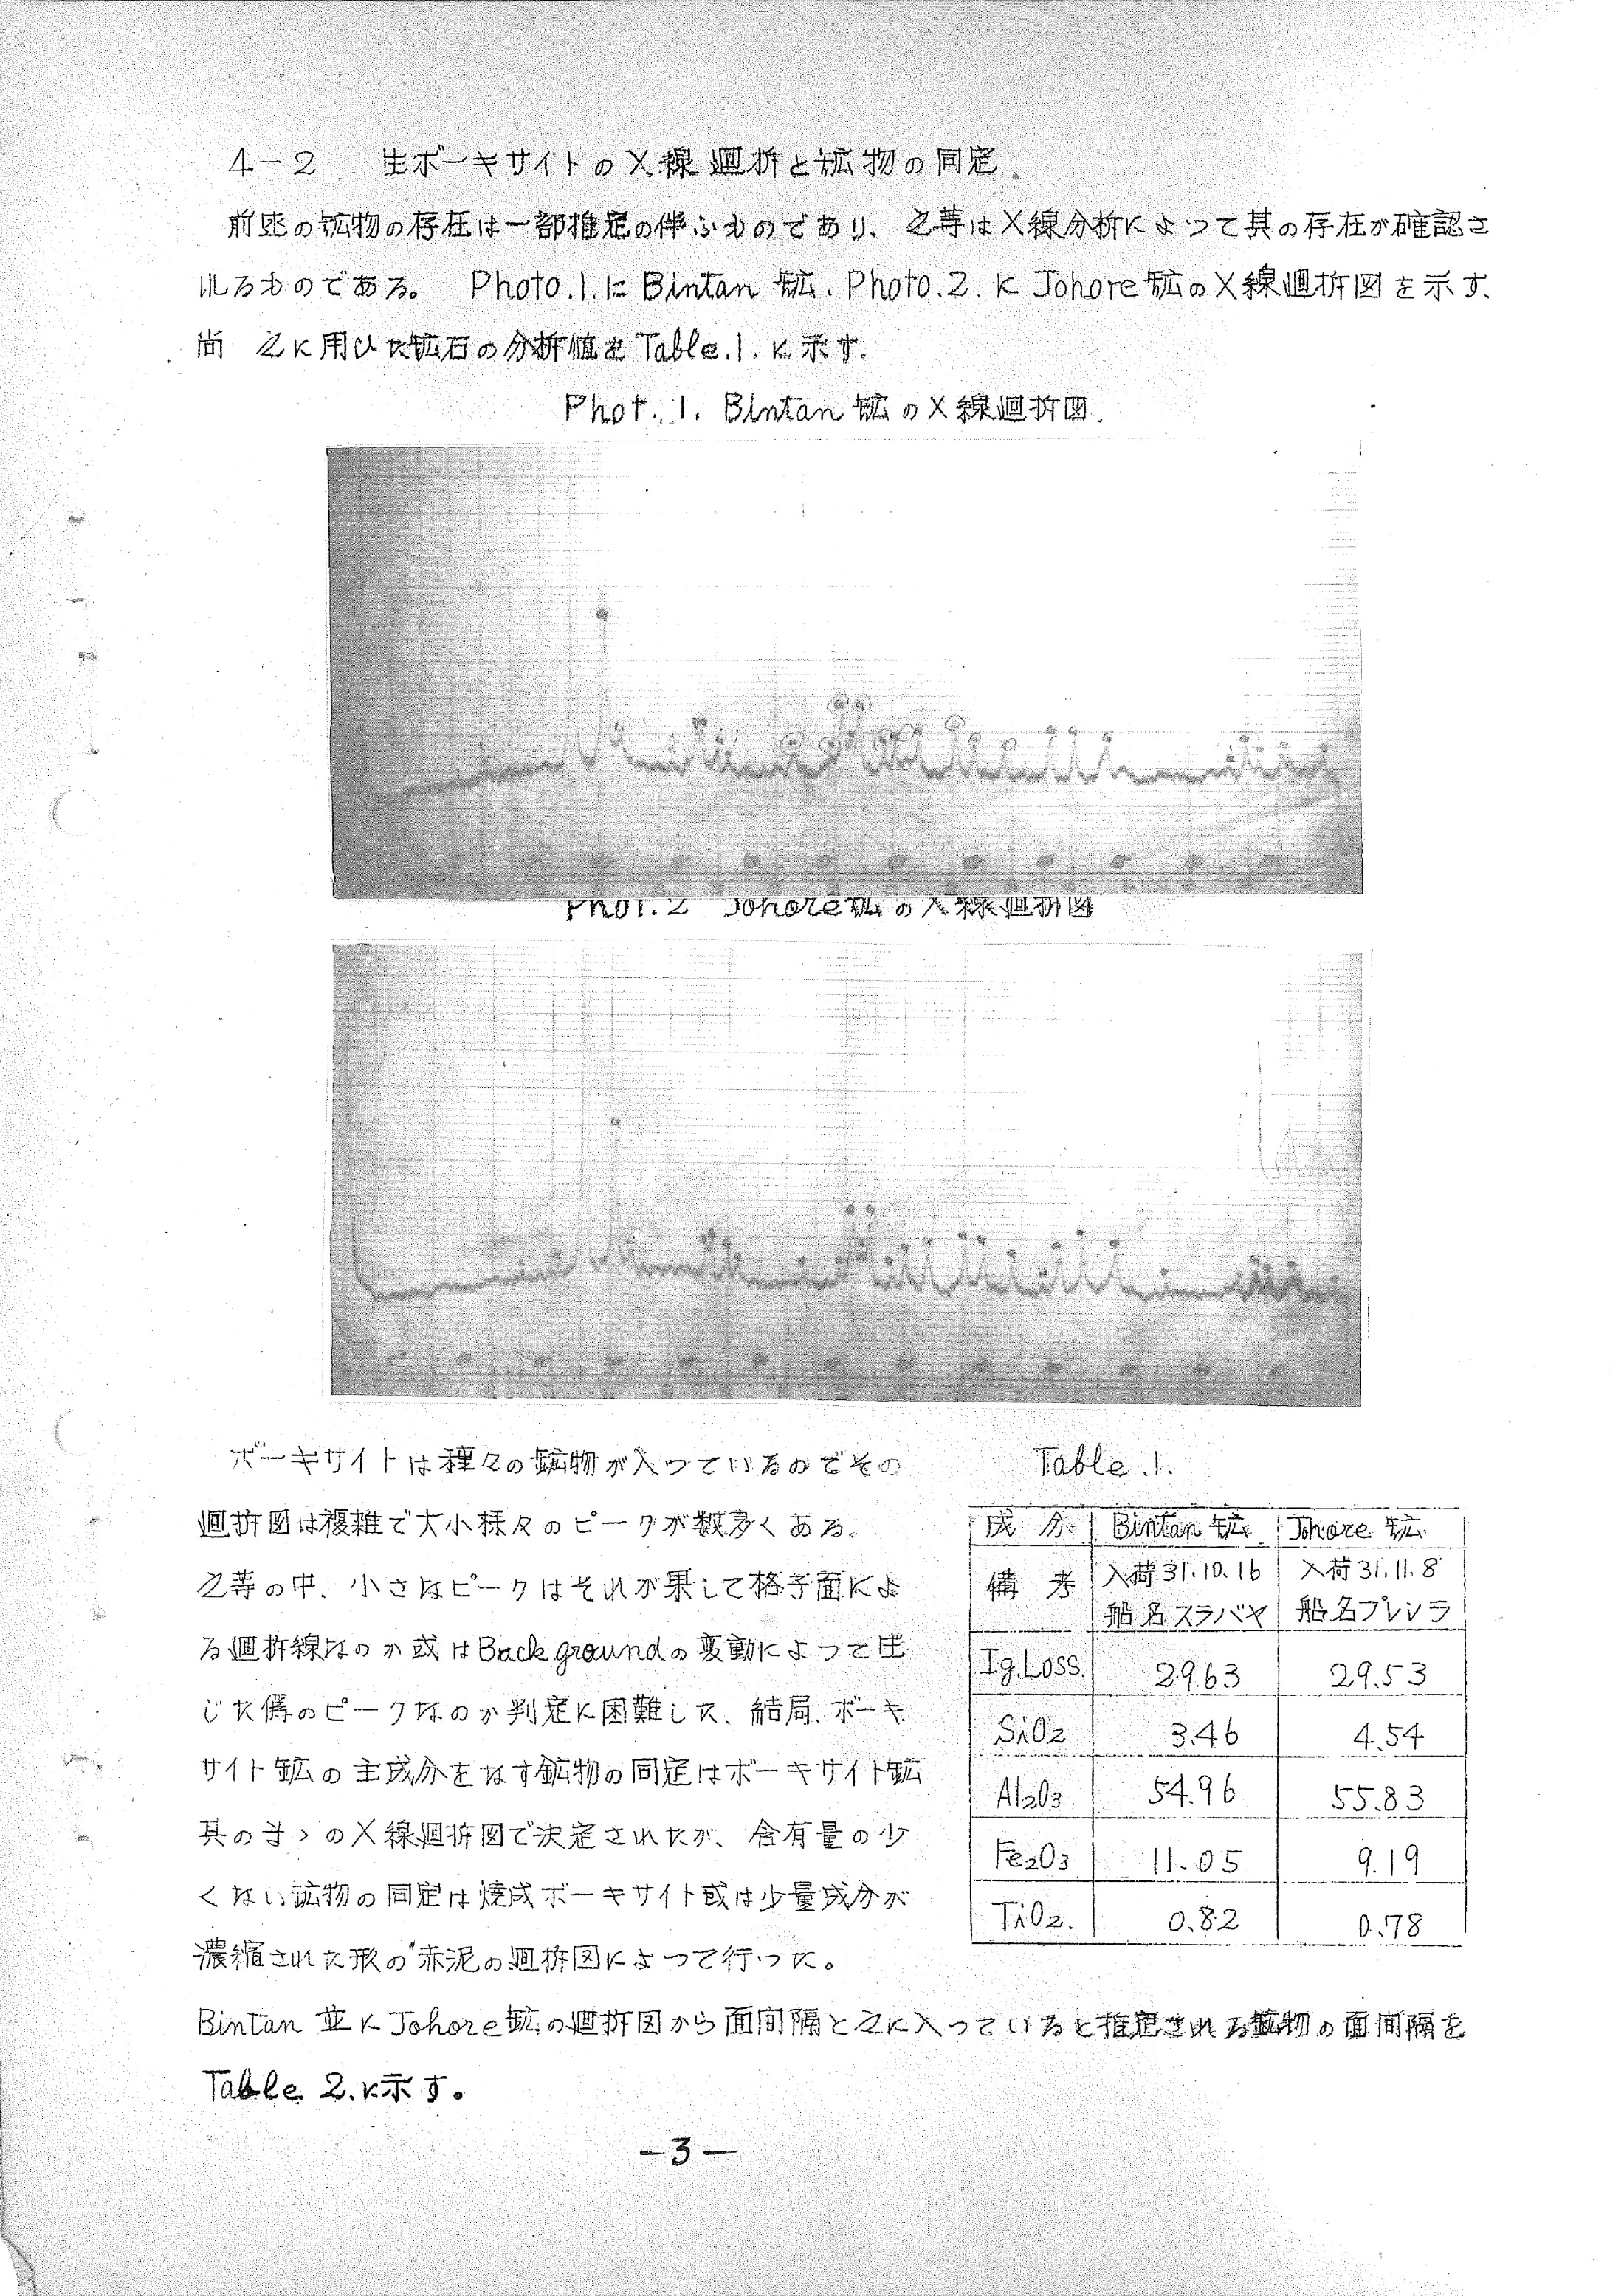 4－2 生ボーキサイトのX線廻折と鉱物の同定.
前述の鉱物の存在は一部推定の伴ふものであり、之等はX線分析によつて其の存在が確認さ
れるものである。 Photo.1.に Bintan 鉱. Photo.2. に Johore 鉱のX線廻折図を示す.
尚 之に用ひた鉱石の分析値を Table.1. に示す.
Phot.1. Bintan 鉱のX線廻折図.
Phot.2 Johore鉱のX線廻折図
ボーキサイトは種々の鉱物が入つているのでその
廻折図は複雑で大小様々のピークが数多くある.
之等の中、小さなピークはそれが果して格子面によ
る廻折線なのか或はBack groundの変動によつて生
じた僞のピークなのか判定に困難した、結局、ボーキ
サイト鉱の主成分をなす鉱物の同定はボーキサイト鉱
其のまゝのX線廻折図で決定されたが、含有量の少
くない鉱物の同定は焼成ボーキサイト或は少量成分が
濃縮された形の赤泥の廻折図によつて行つた。
Table.1.
成分 Bintan 鉱 Jhore 鉱
備考 入荷31.10.16 入荷31.11.8
船名スラバヤ 船名プレシラ
Ig.Loss. 29.63 29.53
SiO2 3.46 4.54
Al2O3 54.96 55.83
Fe2O3 11.05 9.19
TiO2. 0.82 0.78
Bintan 並にJohore鉱の廻折図から面間隔と之に入つていると推定される鉱物の面間隔を
Table 2.に示す。
－3－